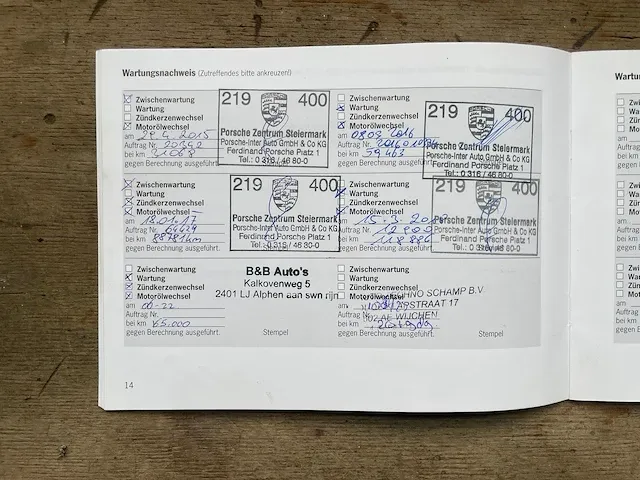 Wartungsnachweis (Zutreffendes bitte ankreuzen!)
Zwischenwartung
Wartung
Zündkerzenwechsel
Motorölwechsel
am 29.4.2015
Auftrag Nr. 20342
bei km 31068
gegen Berechnung ausgeführt.
219 400
Porsche Zentrum Steiermark
Porsche-Inter Auto GmbH & Co KG
Ferdinand Porsche Platz 1
Tel.: 0 316 / 46 80-0
Zwischenwartung
Wartung
Zündkerzenwechsel
Motorölwechsel
am 08.03.2016
Auftrag Nr.
bei km 59463
gegen Berechnung ausgeführt.
219 400
Porsche Zentrum Steiermark
Porsche-Inter Auto GmbH & Co KG
Ferdinand Porsche Platz 1
Tel.: 0 316 / 46 80-0
Zwischenwartung
Wartung
Zündkerzenwechsel
Motorölwechsel
am 18.01.17
Auftrag Nr. 64424
bei km 88781km
gegen Berechnung ausgeführt.
219 400
Porsche Zentrum Steiermark
Porsche-Inter Auto GmbH & Co KG
Ferdinand Porsche Platz 1
Tel.: 0 316 / 46 80-0
Zwischenwartung
Wartung
Zündkerzenwechsel
Motorölwechsel
15.3.
Auftrag Nr.
bei km 118886
gegen Berechnung ausgeführt.
219 400
Porsche Zentrum Steiermark
Porsche-Inter Auto GmbH & Co KG
Ferdinand Porsche Platz 1
Tel.: 0 316 / 46 80-0
Zwischenwartung
Wartung
Zündkerzenwechsel
Motorölwechsel
am 06-22
Auftrag Nr.
bei km 165.000
gegen Berechnung ausgeführt.
Stempel
B&B Auto's
Kalkovenweg 5
2401 LJ Alphen aan den rijn
Zwischenwartung
Wartung
Zündkerzenwechsel
Motorölwechsel
am
Auftrag Nr.
bei km
gegen Berechnung ausgeführt.
Stempel
SCHAMP B.V.
STRAAT 17
WIJCHEN
14
Wartun
am
Auftrag
bei km
gegen B
am
Auftrag
bei km
gegen B
am
Auftrag
bei km
gegen B